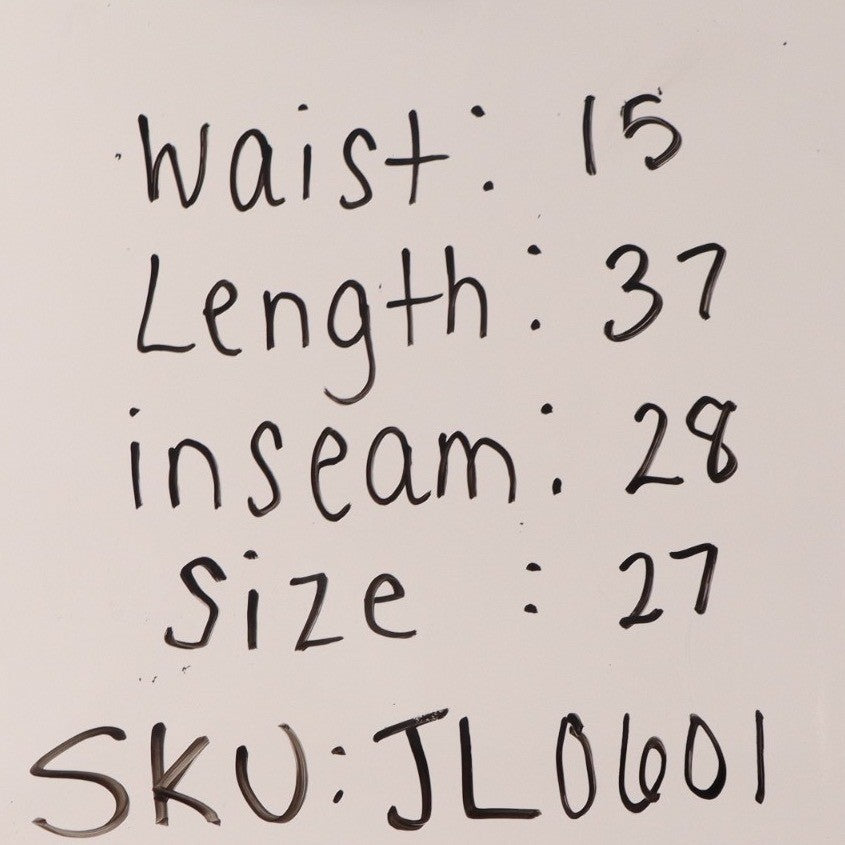 Waist: 15
Length: 37
inseam: 28
Size : 27
SKU: JL0601